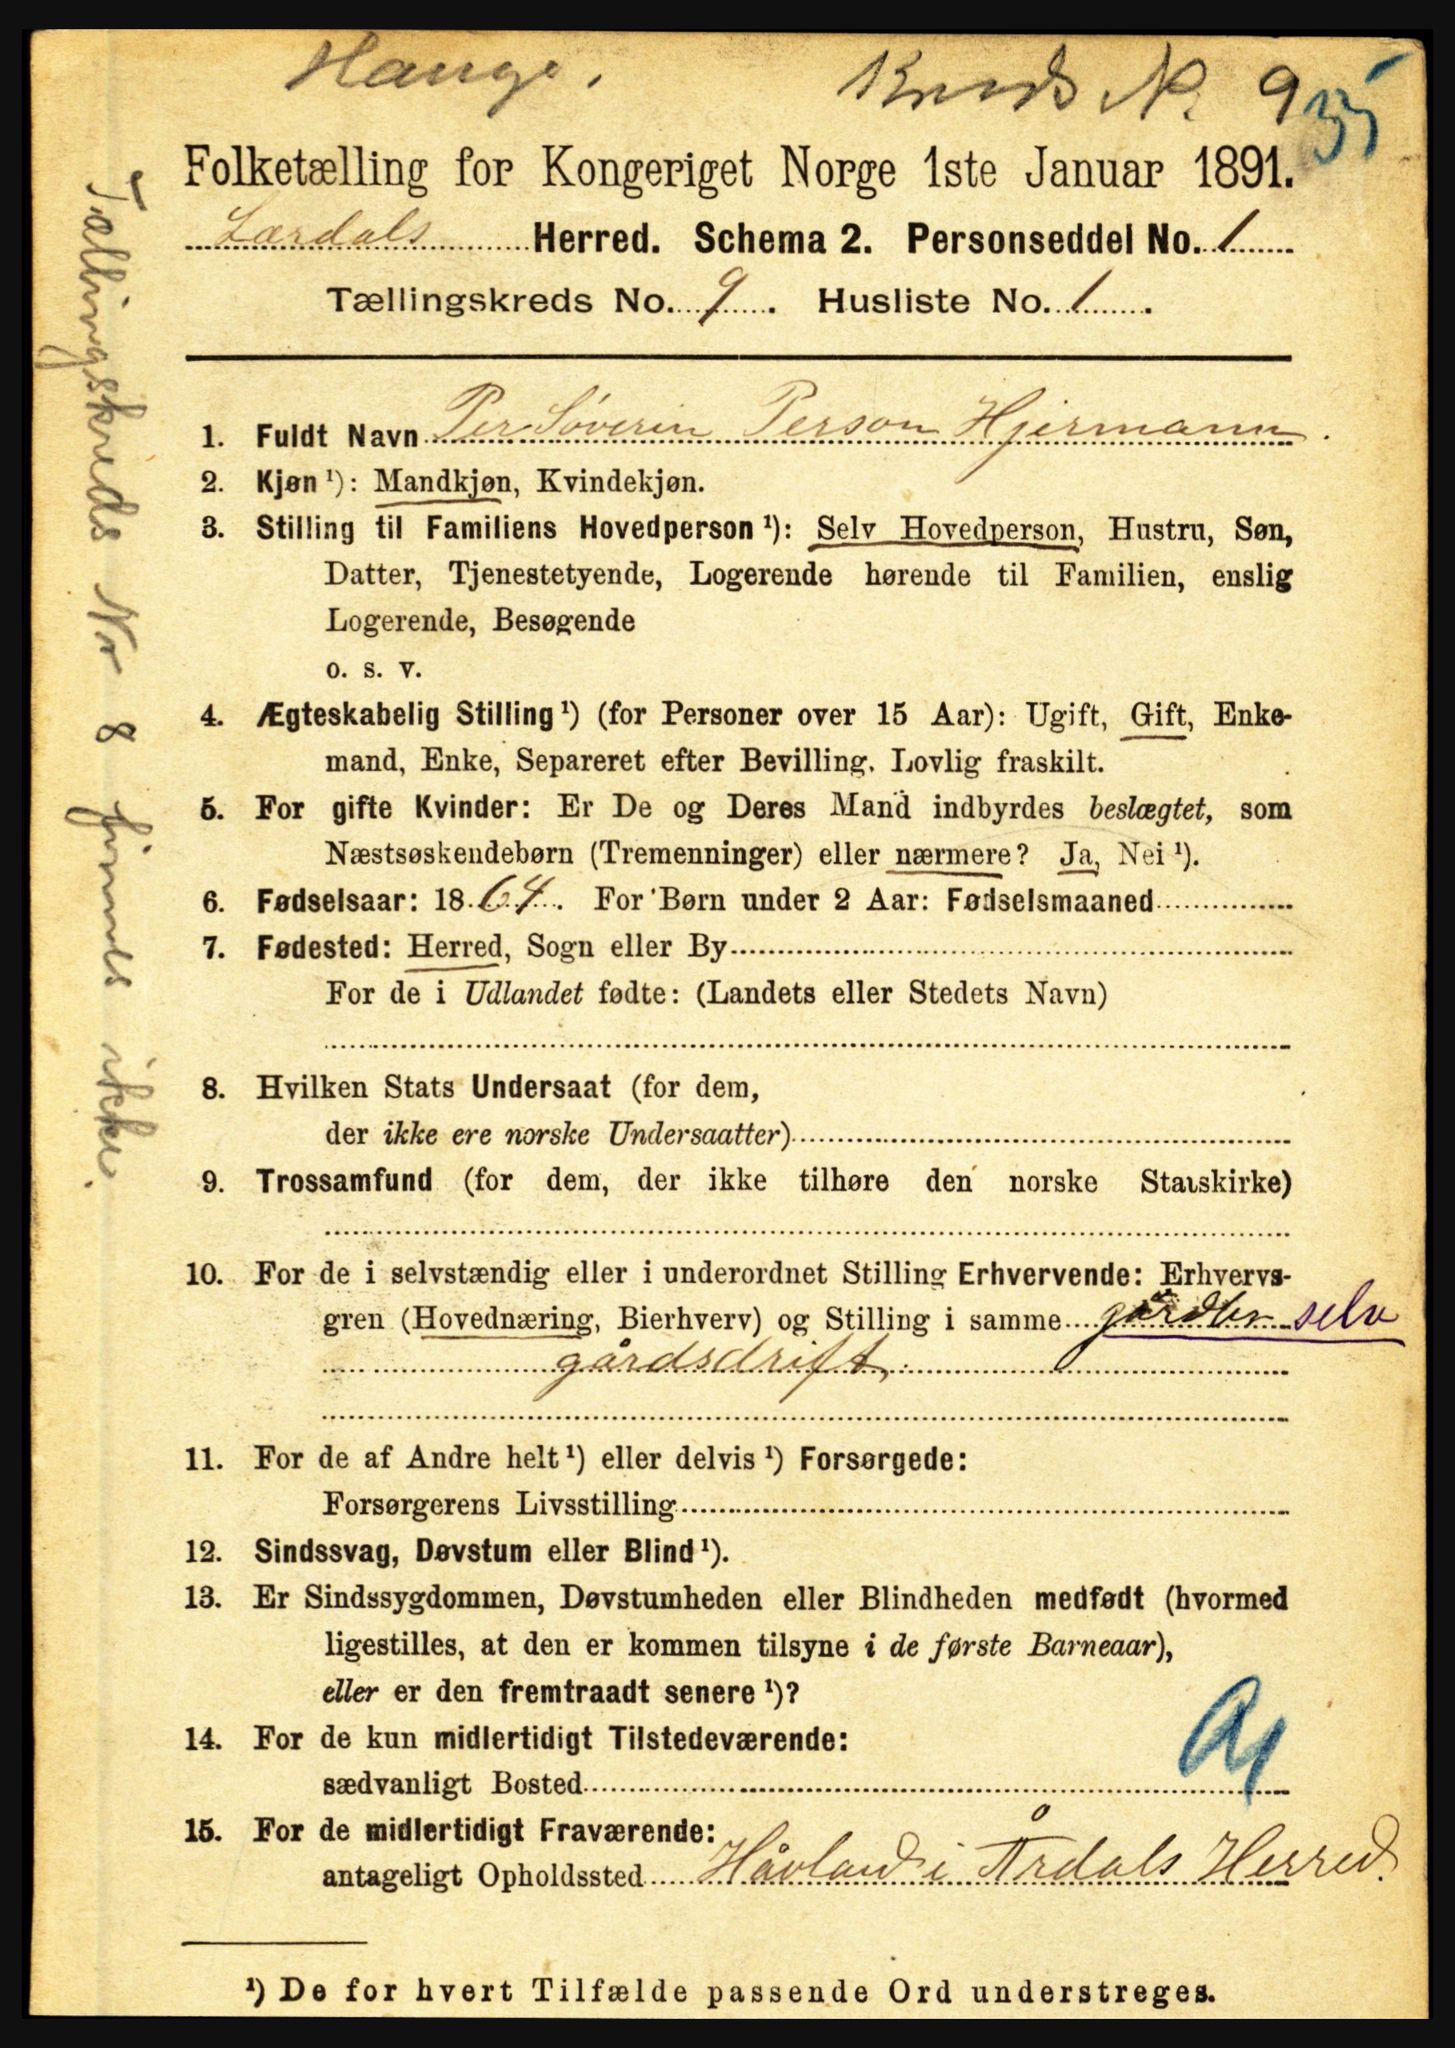 Hauge.
Kreds Nr 9
35
Folketælling for Kongeriget Norge 1ste Januar 1891.
Lærdals Herred. Schema 2. Personseddel No. 1
Tællingskreds No. 9. Husliste No. 1.
Tællingskreds Nr 8 finnes ikke.
1. Fuldt Navn Per Søverin Person Hjermann.
2. Kjøn ¹): Mandkjøn, Kvindekjøn.
3. Stilling til Familiens Hovedperson ¹): Selv Hovedperson, Hustru, Søn,
Datter, Tjenestetyende, Logerende hørende til Familien, enslig
Logerende, Besøgende
o. s. v.
4. Ægteskabelig Stilling ¹) (for Personer over 15 Aar): Ugift, Gift, Enke-
mand, Enke, Separeret efter Bevilling. Lovlig fraskilt.
5. For gifte Kvinder: Er De og Deres Mand indbyrdes beslægtet, som
Næstsøskendebørn (Tremenninger) eller nærmere? Ja, Nei ¹).
6. Fødselsaar: 1864. For Børn under 2 Aar: Fødselsmaaned
7. Fødested: Herred, Sogn eller By
For de i Udlandet fødte: (Landets eller Stedets Navn)
8. Hvilken Stats Undersaat (for dem,
der ikke ere norske Undersaatter)
9. Trossamfund (for dem, der ikke tilhøre den norske Statskirke)
10. For de i selvstændig eller i underordnet Stilling Erhvervende: Erhvervs-
gren (Hovednæring, Bierhverv) og Stilling i samme gårdbr selv
gårdsdrift.
11. For de af Andre helt ¹) eller delvis ¹) Forsørgede:
Forsørgerens Livsstilling
12. Sindssvag, Døvstum eller Blind ¹).
13. Er Sindssygdommen, Døvstumheden eller Blindheden medfødt (hvormed
ligestilles, at den er kommen tilsyne i de første Barneaar),
eller er den fremtraadt senere ¹)?
14. For de kun midlertidigt Tilstedeværende:
sædvanligt Bosted
15. For de midlertidigt Fraværende:
antageligt Opholdssted Håvland i Årdals Herred.
¹) De for hvert Tilfælde passende Ord understreges.